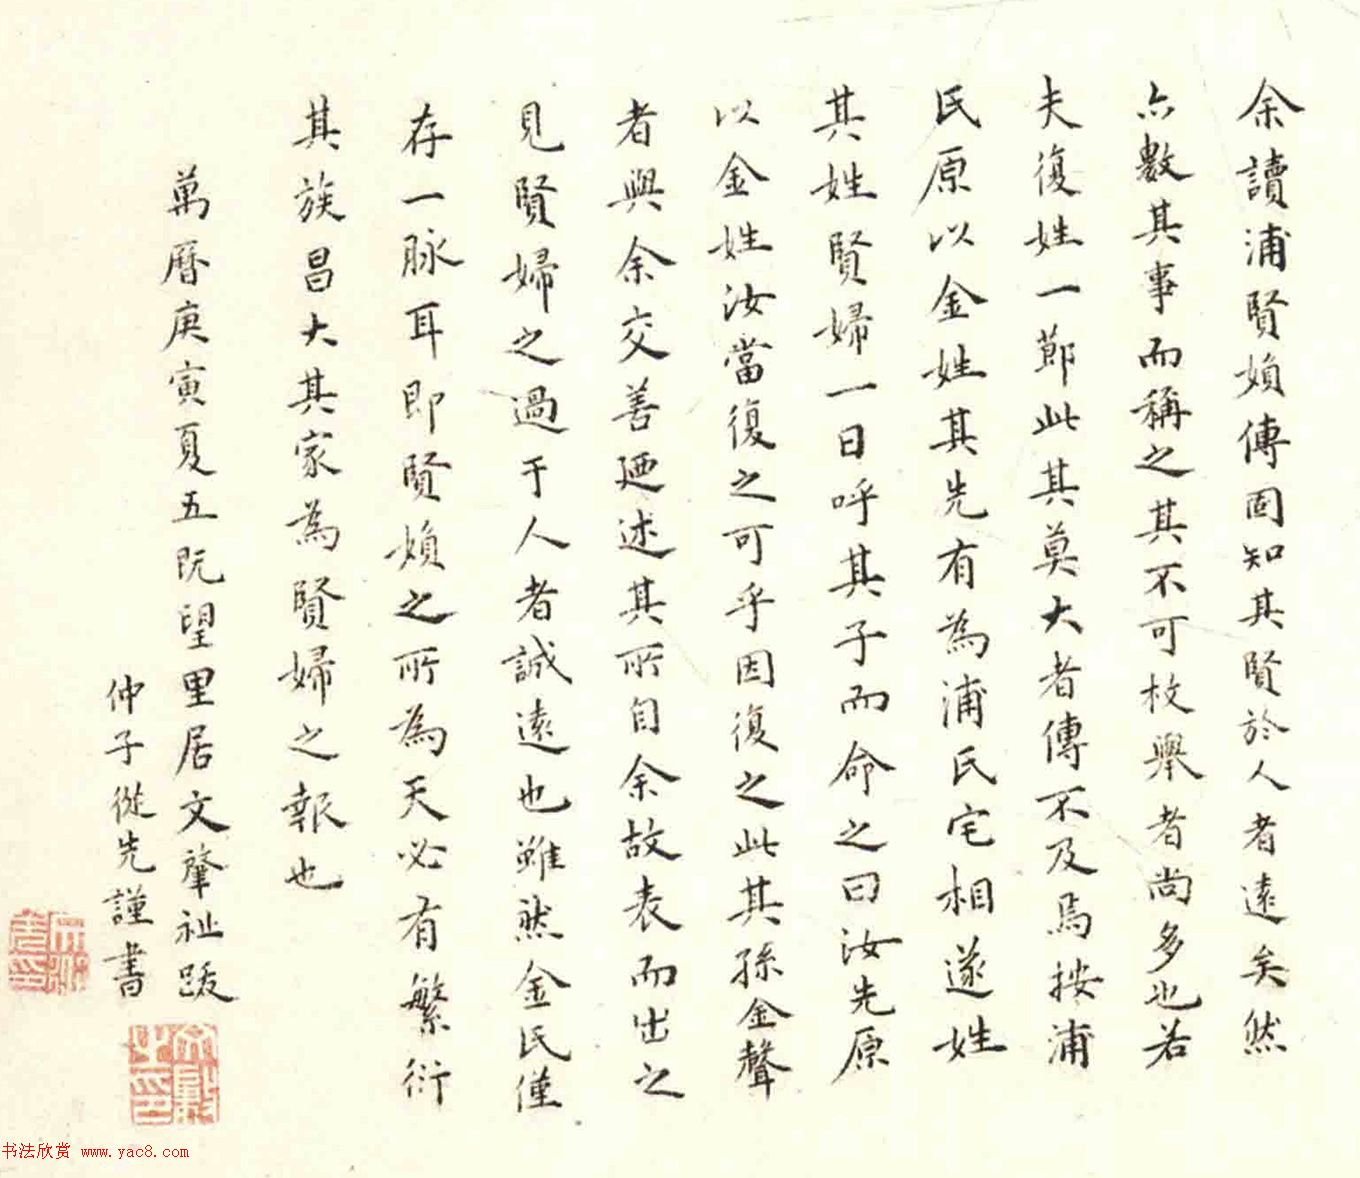 余讀浦賢媍傳固知其賢於人者遠矣然
亦數其事而稱之其不可枚舉者尚多也若
夫復姓一節此其莫大者傳不及焉按浦
氏原以金姓其先有為浦氏宅相遂姓
其姓賢婦一日呼其子而命之曰汝先原
以金姓汝當復之可乎因復之此其孫金聲
者與余交善廼述其所自余故表而出之
見賢婦之過于人者誠遠也雖然金氏僅
存一脉耳即賢媍之所為天必有繁衍
其族昌大其家為賢婦之報也
萬曆庚寅夏五既望里居文肇祉跋
仲子從先謹書
书法欣赏 www.yac8.com